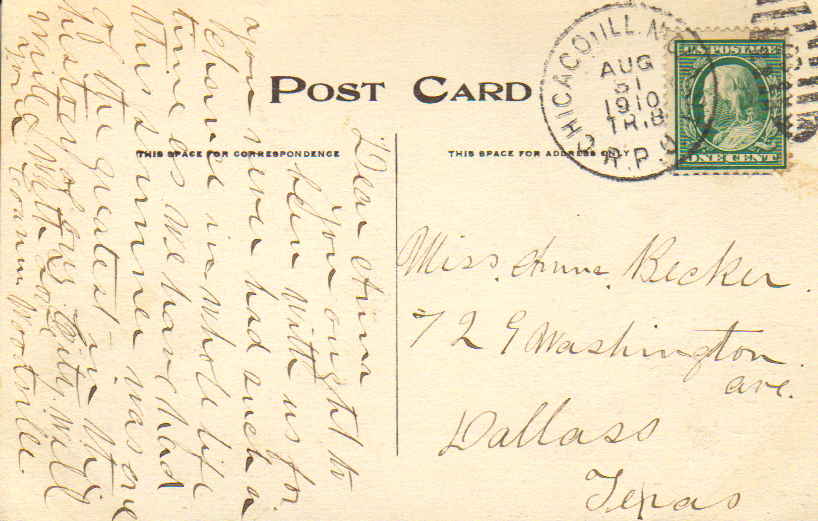 POST CARD
THIS SPACE FOR CORRESPONDENCE
THIS SPACE FOR ADDRESS ONLY
CHICAGO, ILL.
AUG
31
1910
TR.8
R.P.O.
U.S. POSTAGE
ONE CENT
Miss. Anna Becker
729 Washington
ave.
Dallass
Texas
Dear Anna
You ought to
been with us for
you never had such a
behave in whole life
time as we have had
this summer was one
of the greatest in the
history of our City. will
write
With Love